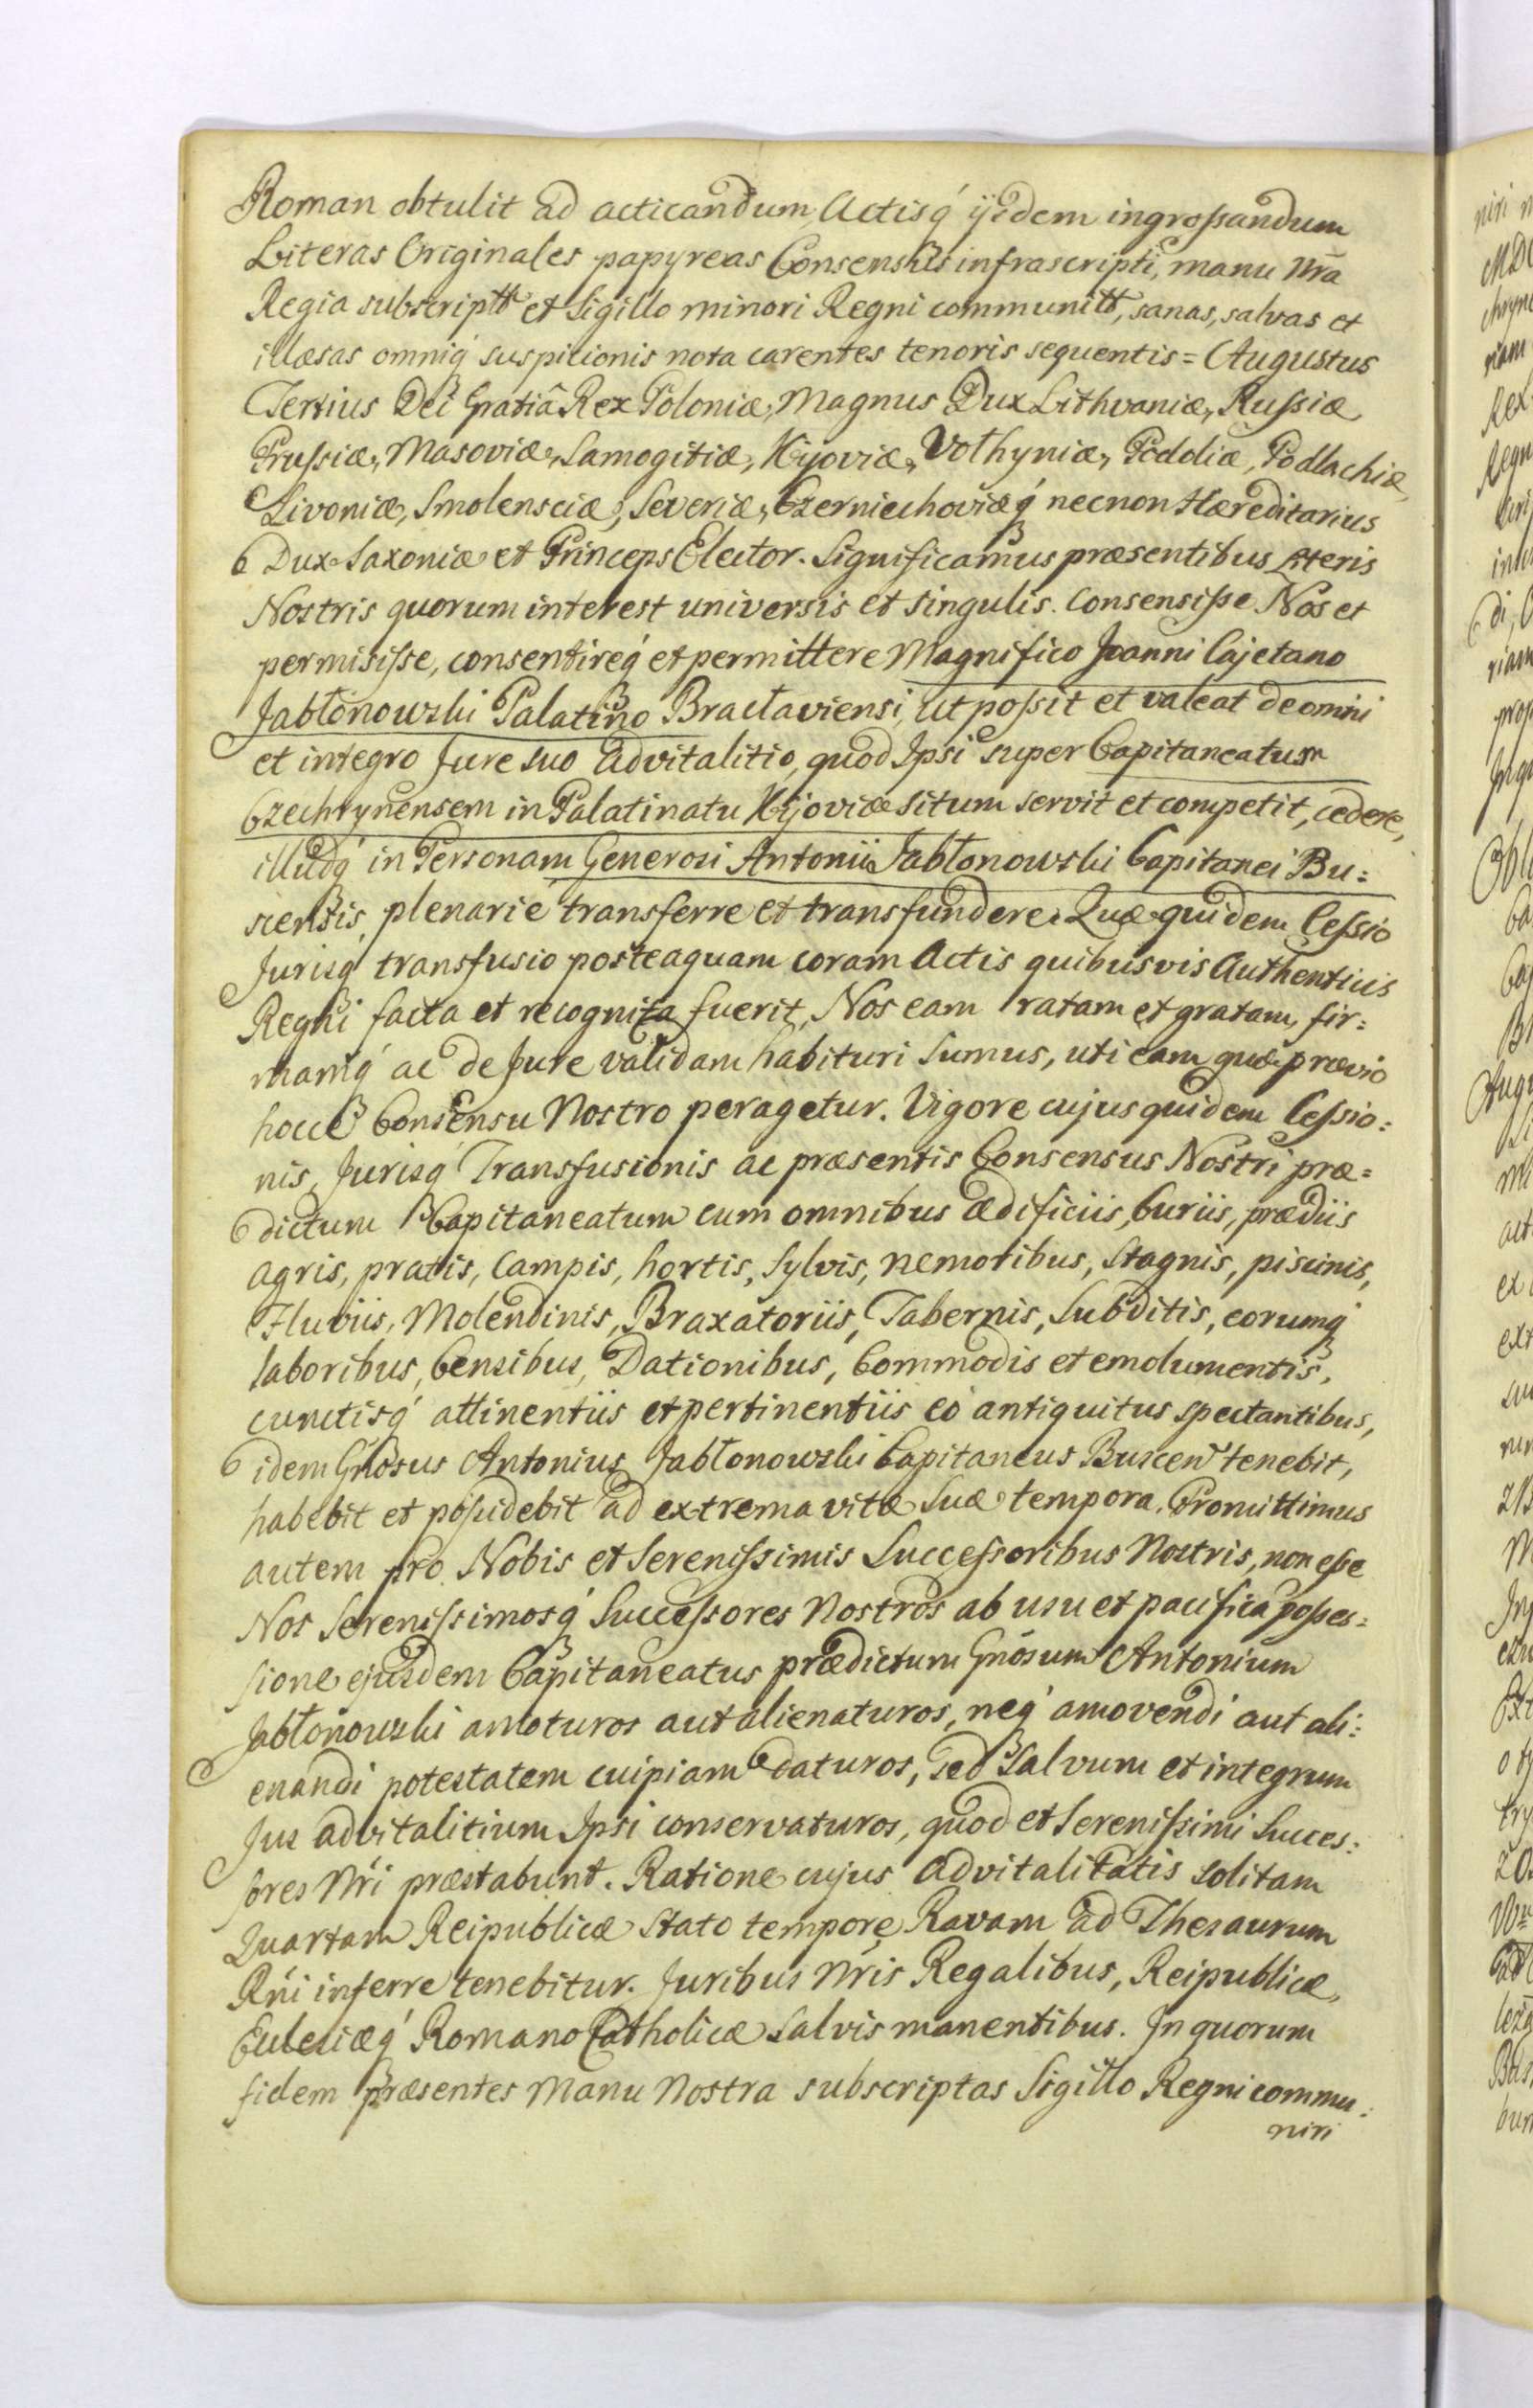 Roman obtulit ad acticandum, Actisq́ ijsdem ingrossandum
Literas Originales papyreas Consensûs infrascripti, manu Nrã
Regia subscriptt et Sigillo minori Regni communitt, sanas, salvas et
illæsas omniq́ suspitionis nota carentes tenoris sequentis = Augustus
Tertius Dei Gratiâ Rex Poloniæ, Magnus Dux Lithvaniæ, Russiæ
Prussiæ, Masoviæ, Samogitiæ, Kijoviæ, Volhyniæ, Podoliæ, Podlachiæ,
Livoniæ, Smolensciæ, Severiæ, Czerniechoviæq́ necnon Hæreditarius
Dux Saxoniæ et Princeps Elector. Significamus præsentibus Literis
Nostris quorum interest universis et singulis. Consensisse Nos et
permisisse, consentireq́ et permittere Magnifico Joanni Cajetano
Jabłonowski Palatino Braclaviensi, ut possit et valeat de omni
et integro Jure suo Advitalitio, quod Ipsi super Capitaneatum
Czechrynensem in Palatinatu Kijoviæ situm servit et competit, cedere,
illudq́ in Personam Generosi Antonii Jabłonowski Capitanei Bu=
scensis, plenarie transferre et transfundere. Quæ quidem Cessio
Jurisq́ transfusio posteaquam coram Actis quibusvis Authenticis
Regni facta et recognita fuerit, Nos eam ratam et gratam, fir=
mamq́ ac de Jure validam habituri sumus, uti eam quæ prævio
hocce Consensu Nostro peragetur. Vigore cujus quidem Cessio=
nis, Jurisq́ Transfusionis ac præsentis Consensus Nostri præ=
dictum Capitaneatum cum omnibus ædificiis, Curiis, prædiis
agris, pratis, Campis, hortis, Sylvis, nemoribus, Stagnis, piscinis,
Fluviis, Molendinis, Braxatoriis, Tabernis, Subditis, eorumq́
laboribus, Censibus, Dationibus, Commodis et emolumentis,
cunctisq́ attinentiis et pertinentiis eò antiquitus spectantibus,
idem Gñosus Antonius Jabłonowski Capitaneus Buscen tenebit,
habebit et possidebit ad extrema vitæ Suæ tempora. Promittimus
autem pro Nobis et Serenissimis Successoribus Nostris, non esse
Nos Serenissimosq́ Successores Nostros ab usu et pacifica posses=
sione ejusdem Capitaneatus prædictum Gñosum Antonium
Jabłonowski amoturos aut alienaturos, neq́ amovendi aut ali=
enandi potestatem cuipiam daturos, sed Salvum et integrum
Jus advitalitium Ipsi conservaturos, quod et Serenissimi Succes=
sores Nri præstabunt. Ratione cujus Advitalitatis solitam
Quartam Reipublicæ Stato tempore Ravam ad Thesaurum
Rni inferre tenebitur. Juribus Nris Regalibus, Reipublicæ,
Ecclesiæq́ Romano Catholicæ Salvis manentibus. In quorum
fidem præsentes Manu Nostra subscriptas Sigillo Regni commu=
niri